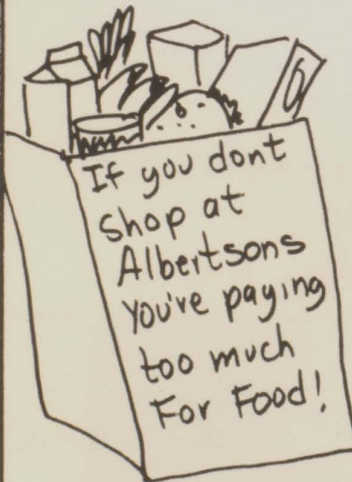 If you dont
shop at
Albertsons
You're paying
too much
For Food!